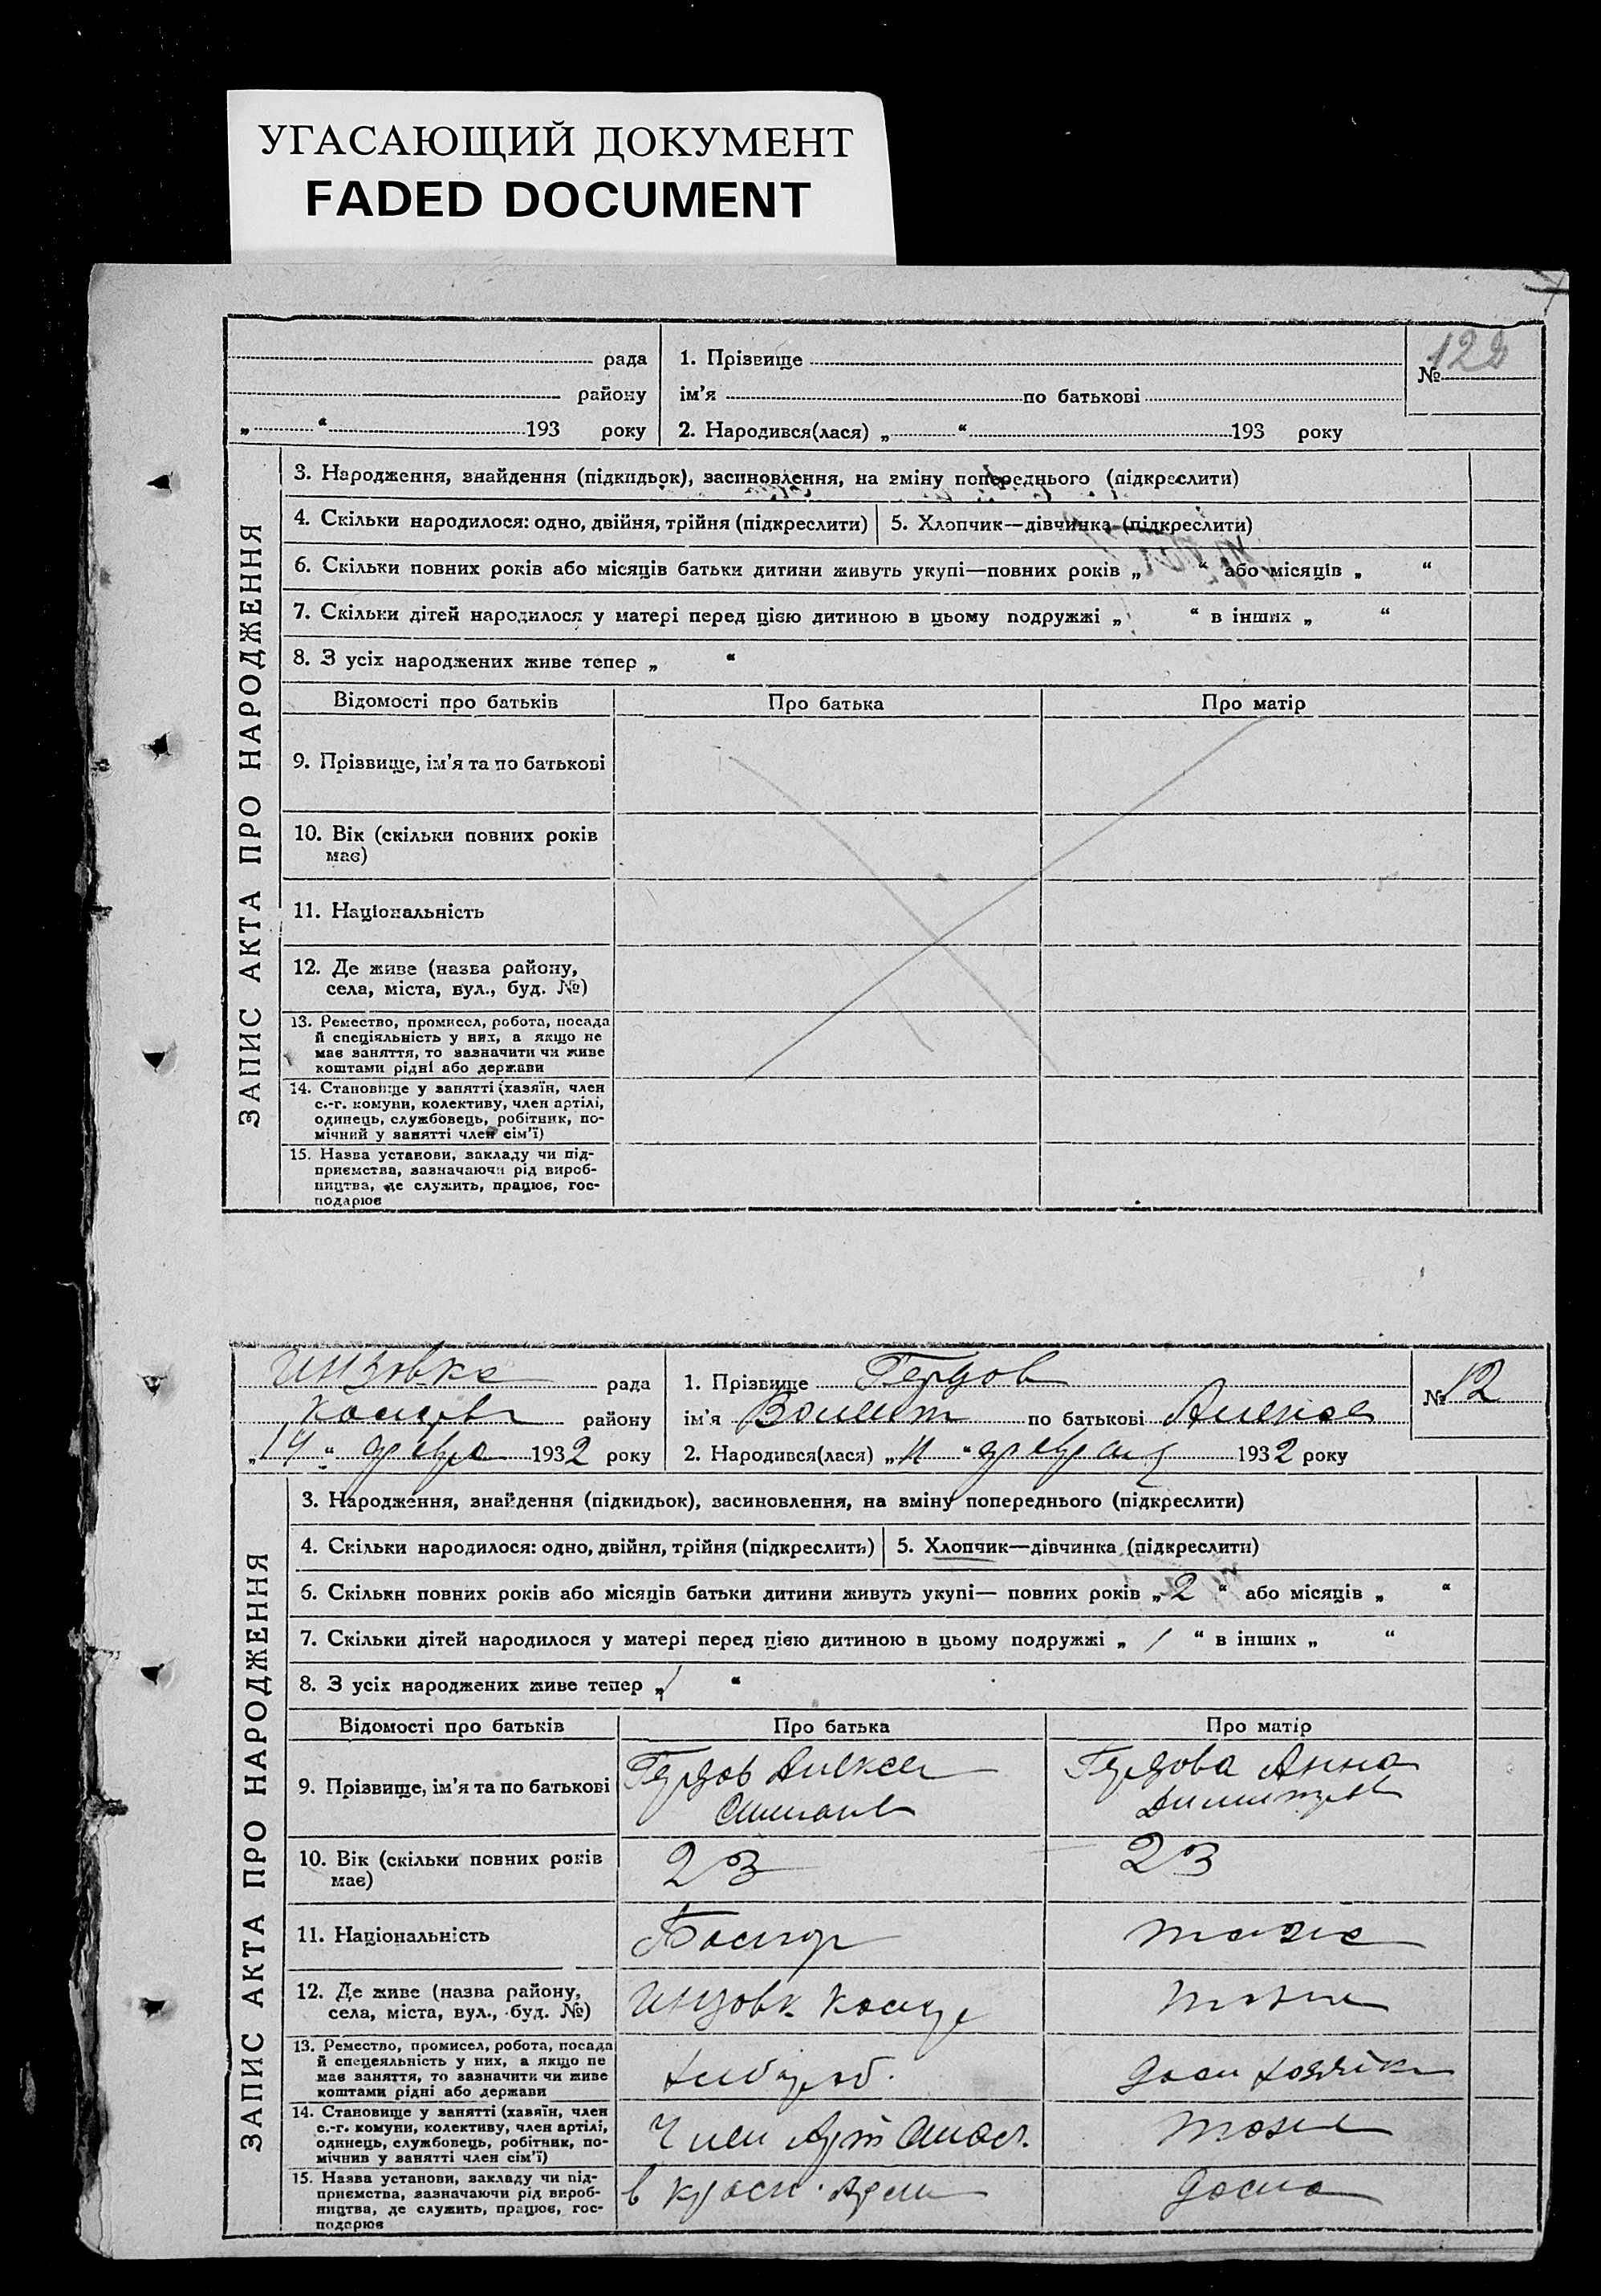 УГАСАЮЩИЙ ДОКУМЕНТ
FADED DOCUMENT
122
рада
1. Прізвище
№
району
ім'я по батькові
„ “ 193 року
2. Народився(лася) „ “ 193 року
ЗАПИС АКТА ПРО НАРОДЖЕННЯ
3. Народження, знайдення (підкидьок), засиновлення, на зміну попереднього (підкреслити)
4. Скільки народилося: одно, двійня, трійня (підкреслити)
5. Хлопчик—дівчинка (підкреслити)
6. Скільки повних років або місяців батьки дитини живуть укупі—повних років „ “ або місяців „ “
7. Скільки дітей народилося у матері перед цією дитиною в цьому подружжі „ “ в інших „ “
8. З усіх народжених живе тепер „ “
Відомості про батьків
Про батька
Про матір
9. Прізвище, ім'я та по батькові
10. Вік (скільки повних років
має)
11. Національність
12. Де живе (назва району,
села, міста, вул., буд. №)
13. Ремество, промисел, робота, посада
й спеціяльність у них, а якщо не
має заняття, то зазначити чи живе
коштами рідні або держави
14. Становище у занятті (хазяїн, член
с.-г. комуни, колективу, член артілі,
одинець, службовець, робітник, по-
мічний у занятті член сім'ї)
15. Назва установи, закладу чи під-
приємства, зазначаючи рід вироб-
ництва, де служить, працює, гос-
подарює
Инзовка рада
1. Прізвище Гердов
№ 12
району
ім'я по батькові Алексе
„14“ февра 1932 року
2. Народився(лася) „11“ февраля 1932 року
ЗАПИС АКТА ПРО НАРОДЖЕННЯ
3. Народження, знайдення (підкидьок), засиновлення, на зміну попереднього (підкреслити)
4. Скільки народилося: одно, двійня, трійня (підкреслить)
5. Хлопчик—дівчинка (підкреслити)
6. Скільки повних років або місяців батьки дитини живуть укупі— повних років „2“ або місяців „ “
7. Скільки дітей народилося у матері перед цією дитиною в цьому подружжі „ / “ в інших „ “
8. З усіх народжених живе тепер „/ “
Відомості про батьків
Про батька
Про матір
9. Прізвище, ім'я та по батькові
Гердов Алексей
Гердова Анна
10. Вік (скільки повних років
має)
23
23
11. Національність
Болгар
тоже
12. Де живе (назва району,
села, міста, вул., буд. №)
Инзовк
тоже
13. Ремество, промисел, робота, посада
й спецеяльність у них, а якщо не
має заняття, то зазначити чи живе
коштами рідні або держави
хлебороб.
дом хозяйк
14. Становище у занятті (хазяїн, член
с.-г. комуни, колективу, член артілі,
одинець, службовець, робітник, по-
мічнив у занятті член сім'ї)
Член Арт
тоже
15. Назва установи, закладу чи під-
приємства, зазначаючи рід вироб-
ництва, де служить, працює, гос-
подарює
в Красн. Арми
дома